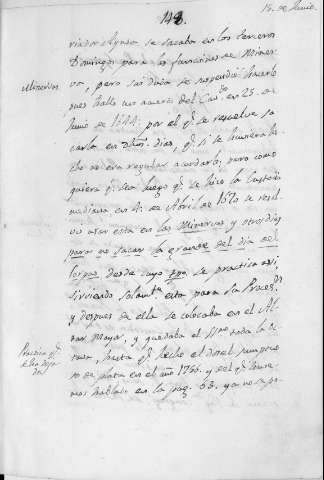 148.
15. de Junio.
Minervas
viador Ayuso se sacaba en los terceros
Domingos para las funciones de Miner
va, pero sin duda se suspendió hacerlo
pues hallo un acuerdo del Cav.do en 25. de
Junio de 1644. por el q.e se resuelve sa
carla en dhos. dias, q.e si se huviera he
cho no era regular acordarlo; pero como
quiera q.e sea luego q.e se hizo la Custodia
mediana en 4. de Abril de 1670 se resol
vio usar esta en las Minervas y otros dias
para no sacar la grande del dia del
Corpus, desde cuyo tpo. se practica asi
sirviendo solam.te esta para la Proces.on
y despues de ella se colocaba en el Al
tar Mayor, y quedaba el SSmo toda la Oc
tava, hasta q.e hecho el dosel sumptuo
so de plata en el año 1756. y del q.e hare
mos hablado en la pag. 63. ya no se po-
Practica q.e